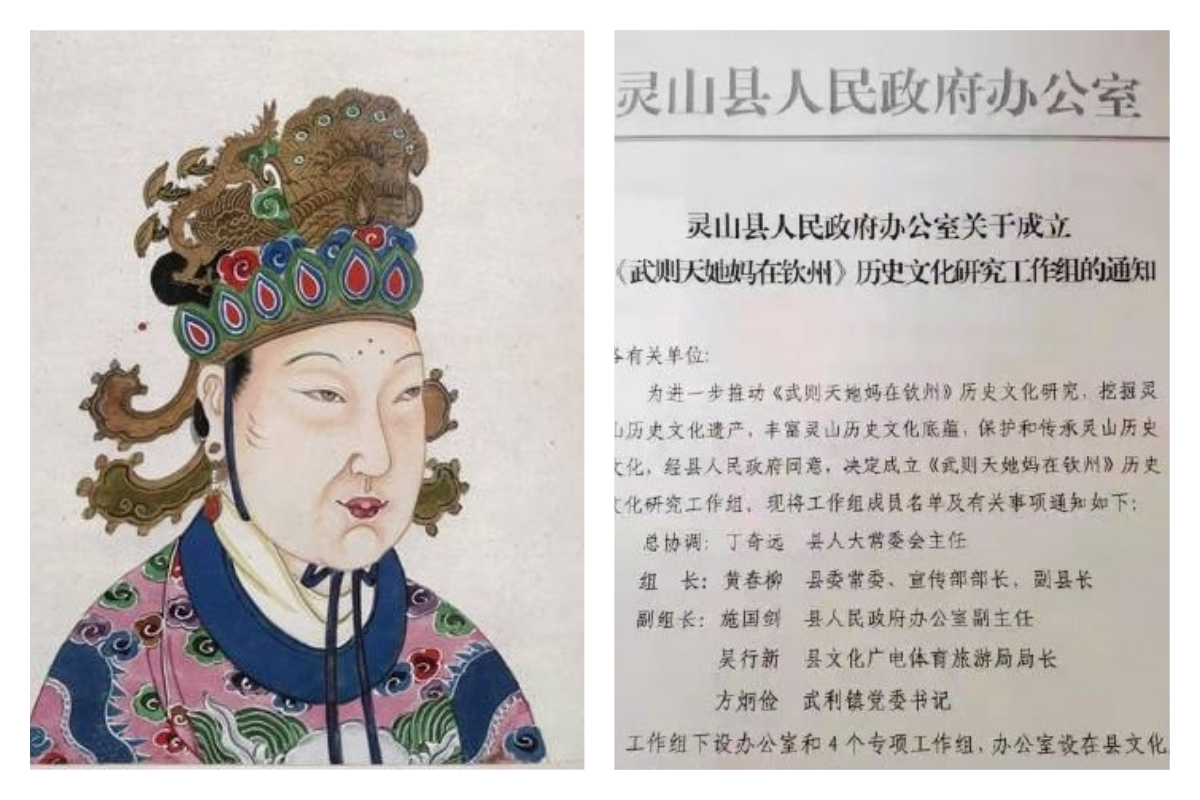 灵山县人民政府办公室
灵山县人民政府办公室关于成立
《武则天她妈在钦州》历史文化研究工作组的通知
各有关单位:
为进一步推动《武则天她妈在钦州》历史文化研究,挖掘灵
山历史文化遗产,丰富灵山历史文化底蕴,保护和传承灵山历史
文化,经县人民政府同意,决定成立《武则天她妈在钦州》历史
文化研究工作组,现将工作组成员名单及有关事项通知如下:
总协调: 丁奇远 县人大常委会主任
组 长: 黄春柳 县委常委、宣传部部长、副县长
副组长: 施国剑 县人民政府办公室副主任
吴行新 县文化广电体育旅游局局长
方炳俭 武利镇党委书记
工作组下设办公室和4个专项工作组,办公室设在县文化